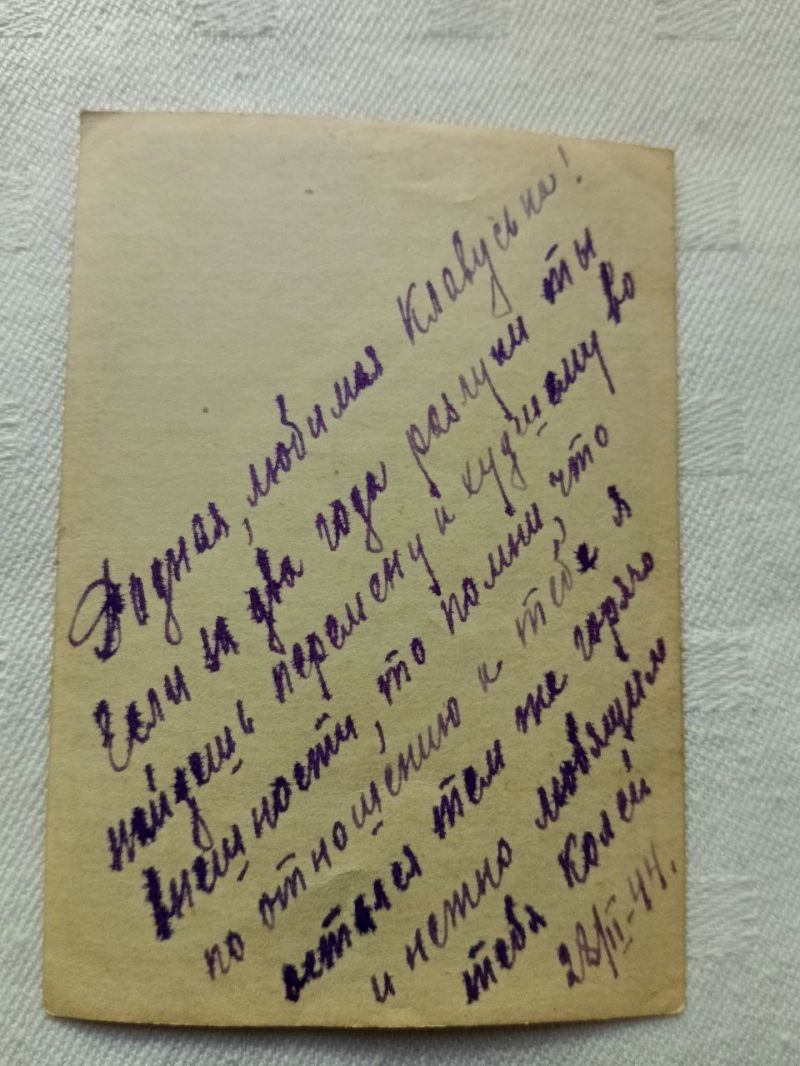 Родная, любимая Клавуська!
Если за два года разлуки ты
найдешь перемену к худшему во
внешности, то помни, что
по отношению к тебе я
остался тем же горячо
и нежно любящим
тебя Колей
28/II-44.